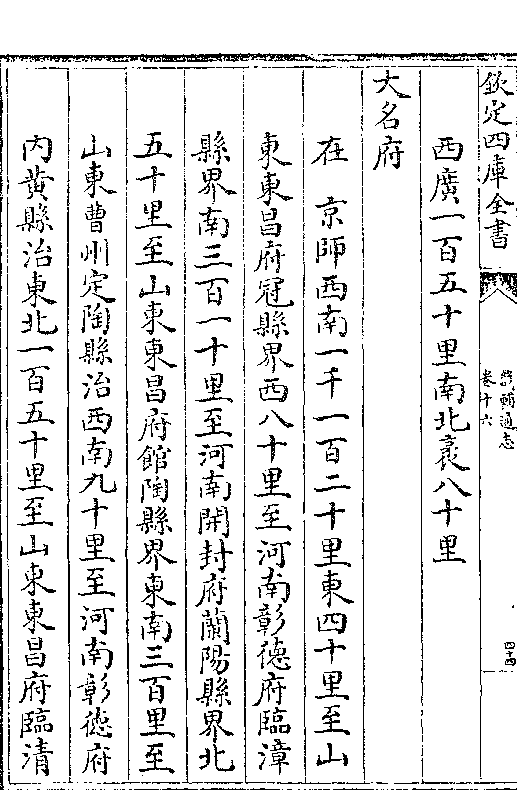 欽定四庫全書
畿輔通志
卷十六
四十四
西廣一百五十里南北袤八十里
大名府
在　京師西南一千一百二十里東四十里至山
東東昌府冠縣界西八十里至河南彰德府臨漳
縣界南三百一十里至河南開封府蘭陽縣界北
五十里至山東東昌府館陶縣界東南三百里至
山東曹州定陶縣治西南九十里至河南彰德府
内黄縣治東北一百五十里至山東東昌府臨清